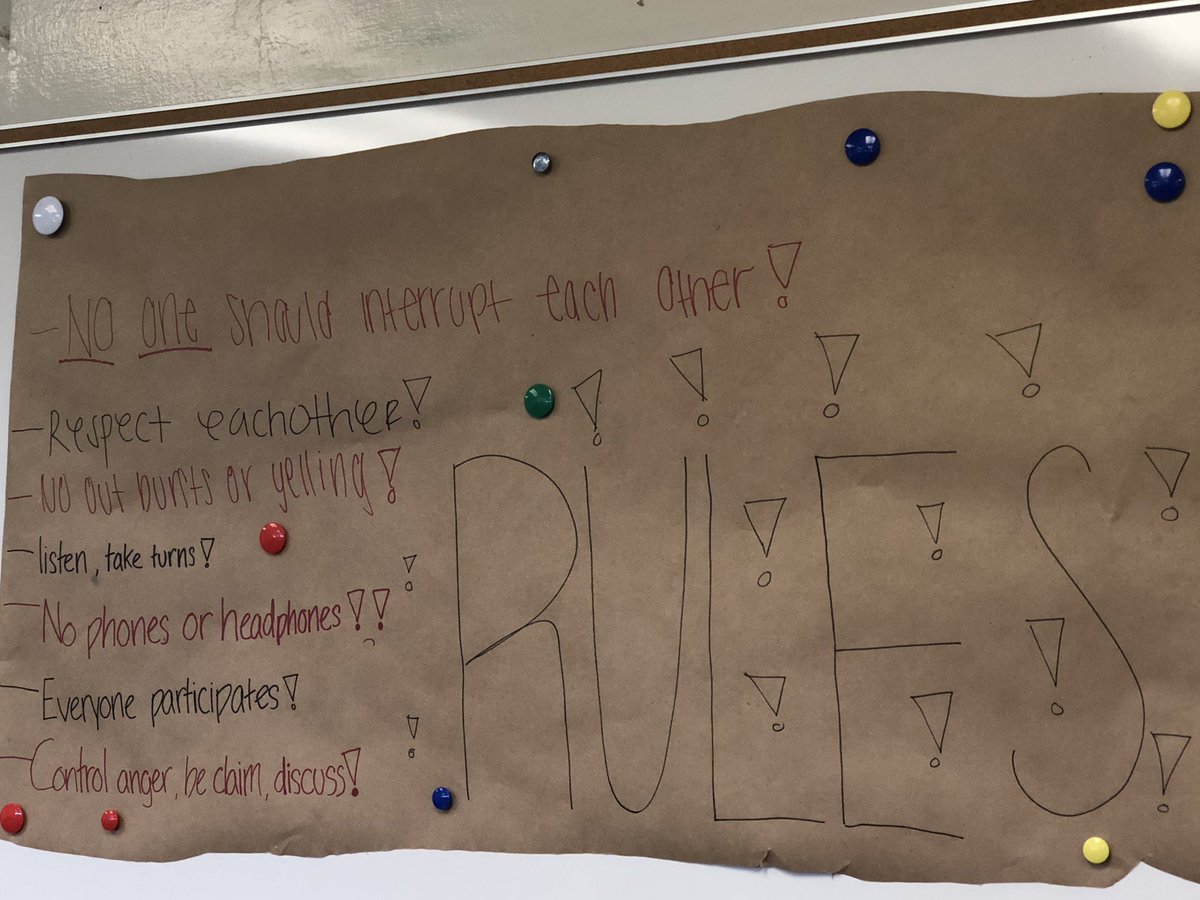 - NO one should interrupt each other!
- Respect eachother!
- No out bursts or yelling!
- listen, take turns!
- No phones or headphones!!
- Everyone participates!
- Control anger, be claim, discuss!
RULES